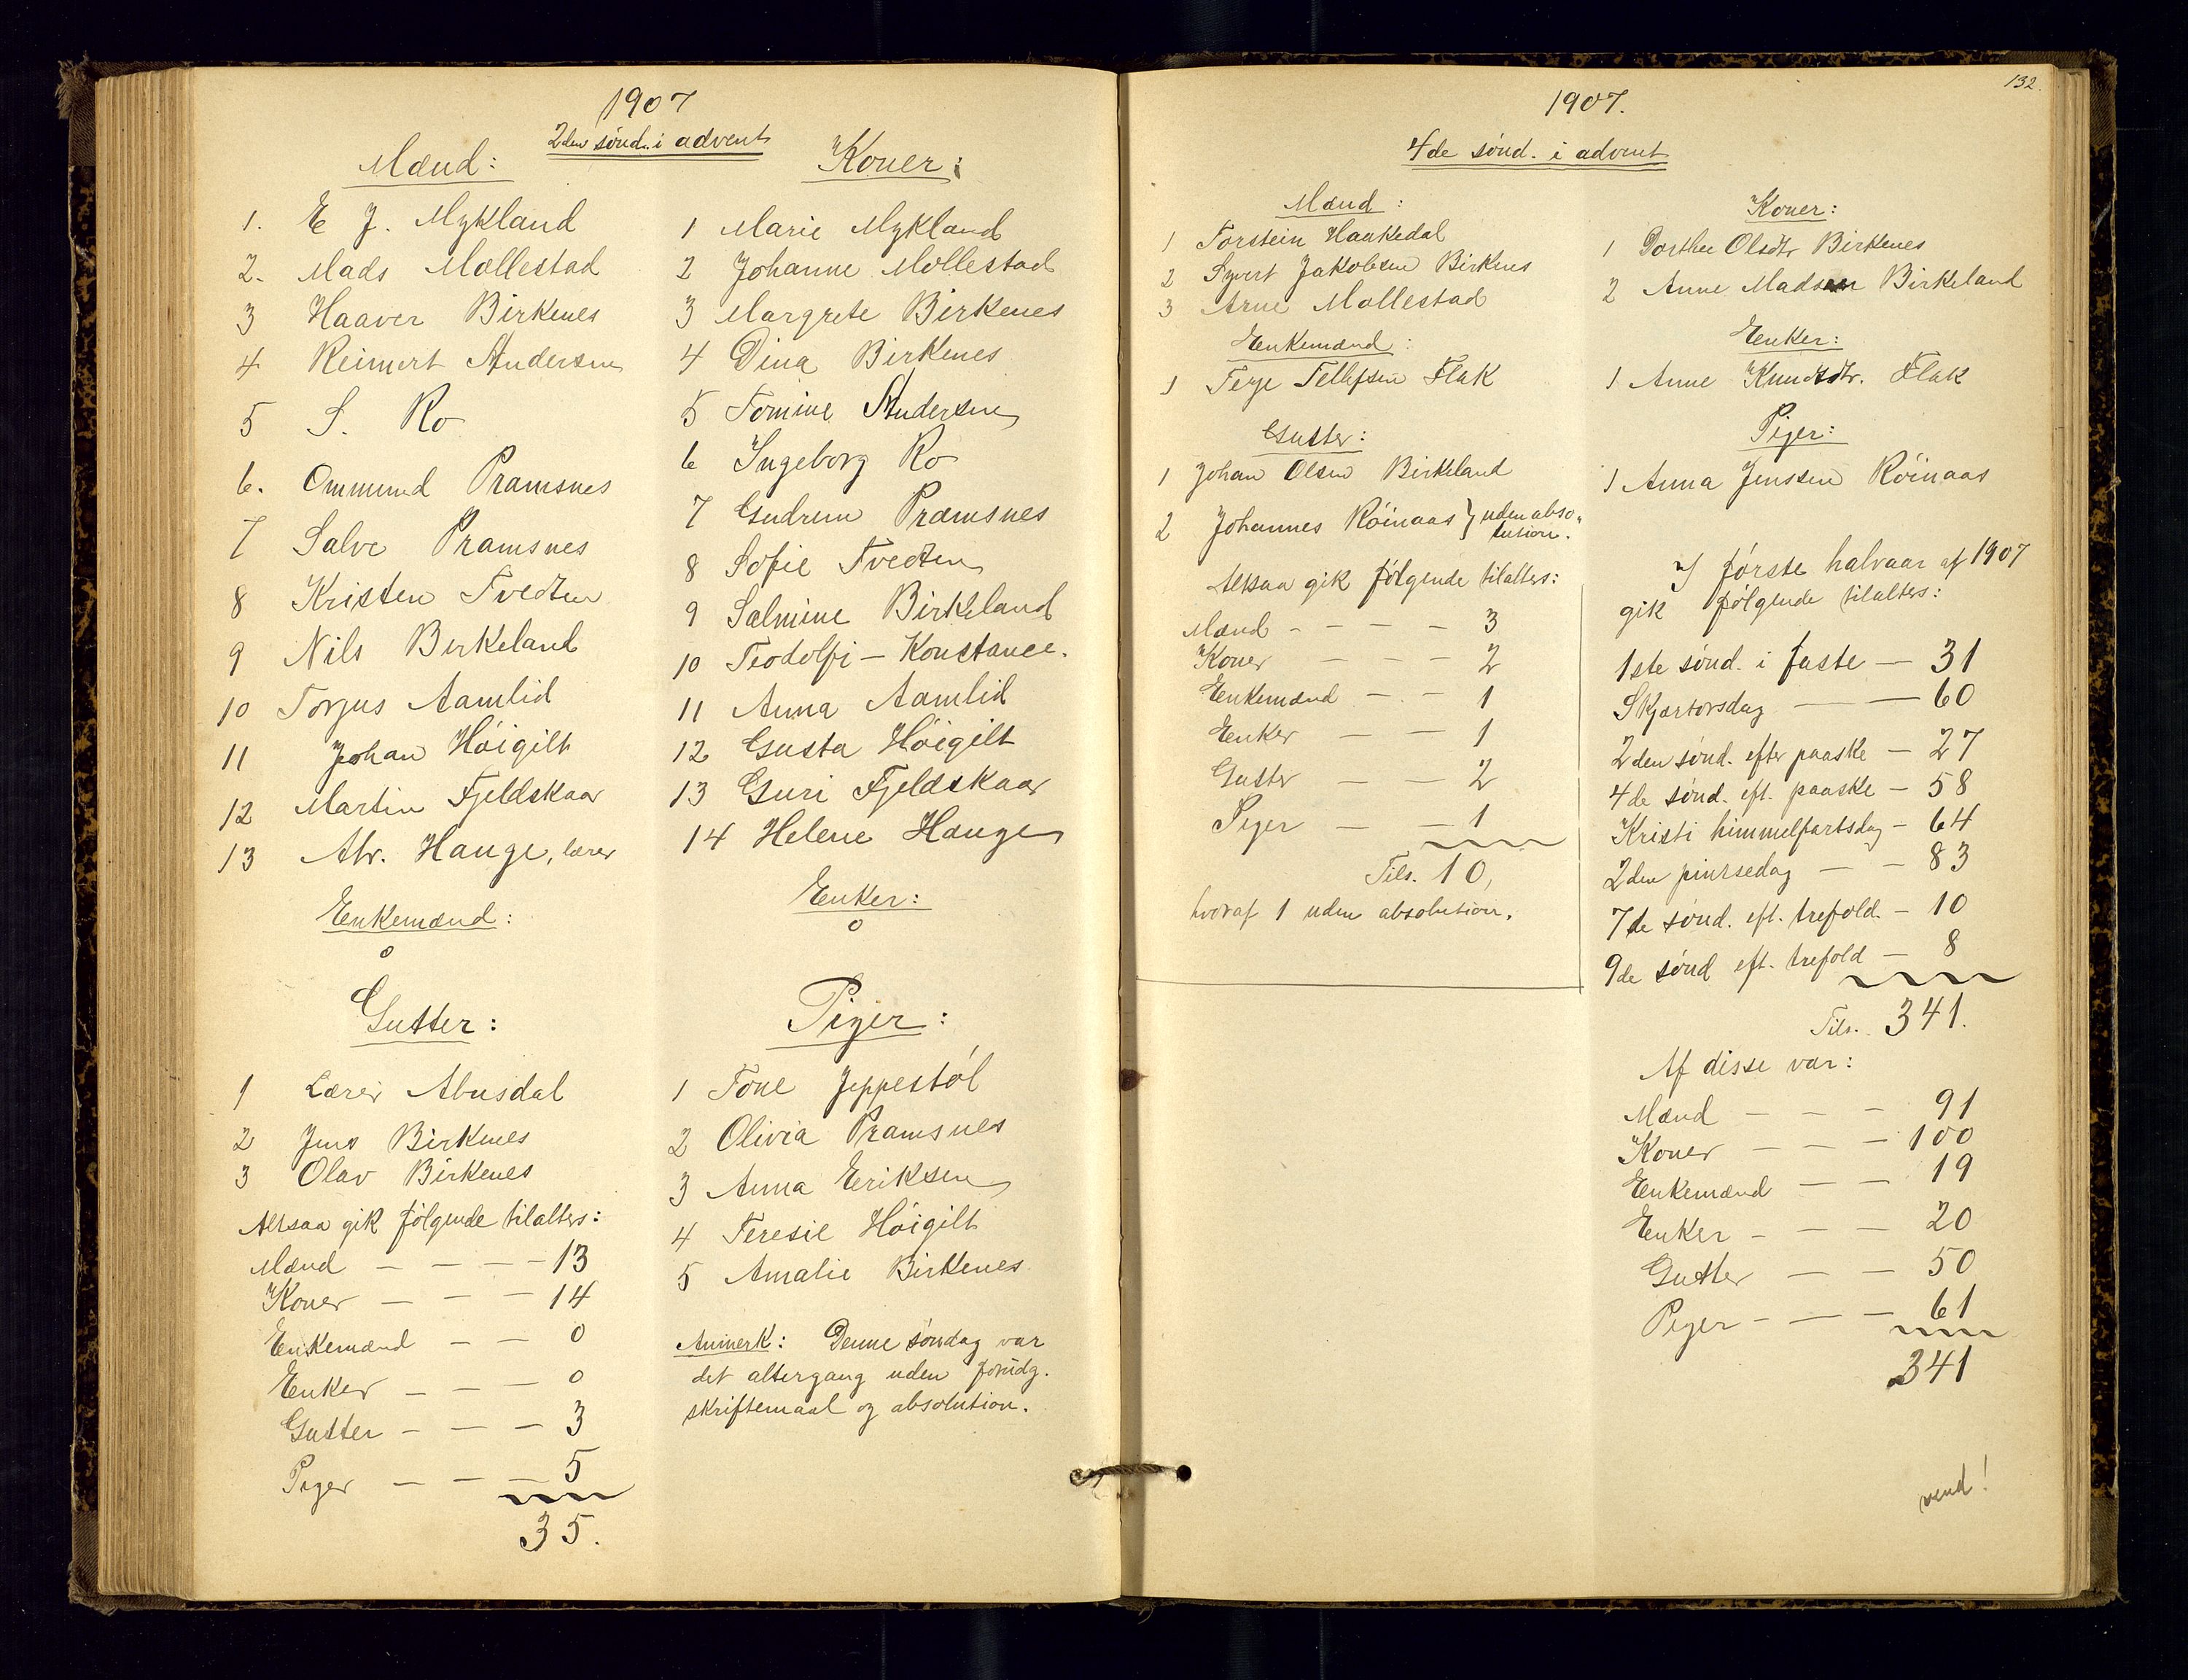 1907
2den sønd. i advent
Mænd:
1. E J. Mykland
2. Mads Mollestad
3 Haaver Birkenes
4 Reinert Andersen
5 S. Ro
6. Ommund Pramsnes
7 Salve Pramsnes
8 Kristen Tvedten
9 Nils Birkeland
10 Torjus Aamlid
11 Johan Høigilt
12 Martin Fjeldskaar
13 Atr. Hauge, lærer
Enkemænd:
0
Gutter:
1 Lærer Abusdal
2 Jens Birkenes
3 Olav Birkenes
Altsaa gik følgende tilalters:
Mænd — — — — 13
Koner — — — 14
Enkemænd — — 0
Enker — — — 0
Gutter — — — 3
Piger — — — 5
35.
Koner:
1 Marie Mykland
2 Johanne Mollestad
3 Margrete Birkenes
4 Dina Birkenes
5 Tomine Andersen
6 Ingeborg Ro
7 Gudrun Pramsnes
8 Sofie Tvedten
9 Salmine Birkeland
10 Teodolfi — Konstance.
11 Anna Aamlid
12 Gusta Høigilt
13 Guri Fjeldskaar
14 Helene Hauge
Enker:
0
Piger:
1 Tone Jeppestøl
2 Olivia Pramsnes
3 Anna Eriksen
4 Teresie Høigilt
5 Amalie Birkenes
Anmerk: Denne søndag var
det altergang uden forudg.
skriftemaal og absolution.
132.
1907.
4de sønd. i advent
Mænd:
1 Torstein Haakedal
2 Syvert Jakobsen Birknes
3 Arne Mollestad
Enkemænd:
1 Terje Tellefsen Flak
Gutter:
1 Johan Olsen Birkeland
2 Johannes Røinaas } uden abso-
lution.
Altsaa gik følgende tilalters:
Mænd - - - - 3
Koner — — — 2
Enkemænd — — 1
Enker — — 1
Gutter — — 2
Piger — — 1
Tils. 10,
hvoraf 1 uden absolution.
Koner:
1 Dorthee Olsdtr Birkenes
2 Anne Madsen Birkeland
Enker:
1 Anne Knudsdtr. Flak
Piger:
1 Anna Jenssen Røinaas
I første halvaar af 1907
gik følgende tilalters:
1ste sønd. i faste — 31
Skjærtorsdag — — 60
2den sønd. efter paaske — 27
4de sønd. eft. paaske — 58
Kristi himmelfartsdag — 64
2den pintsedag — — 83
7de sønd. eft. trefold. — 10
9de sønd eft. trefold — 8
Tils. 341.
Af disse var:
Mænd — — — 91
Koner — — — 100
Enkemænd — — 19
Enker — — — 20
Gutter — — 50
Piger — — — 61
341
vend!